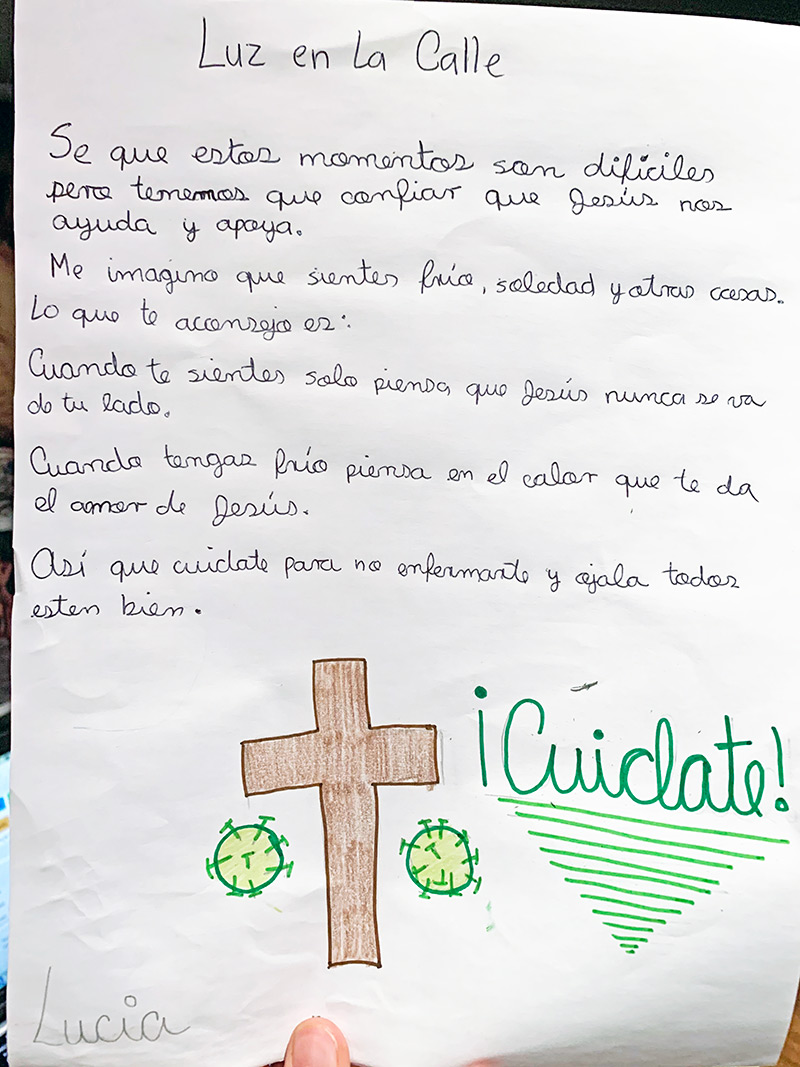 Luz en La Calle
Se que estos momentos son difíciles
pero tenemos que confiar que Jesús nos
ayuda y apoya.
Me imagino que sientes frío, soledad y otras cosas.
Lo que te aconsejo es:
Cuando te sientes solo piensa que Jesús nunca se va
de tu lado.
Cuando tengas frío piensa en el calor que te da
el amor de Jesús.
Así que cuidate para no enfermarte y ojala todos
esten bien.
¡Cuidate!
Lucia